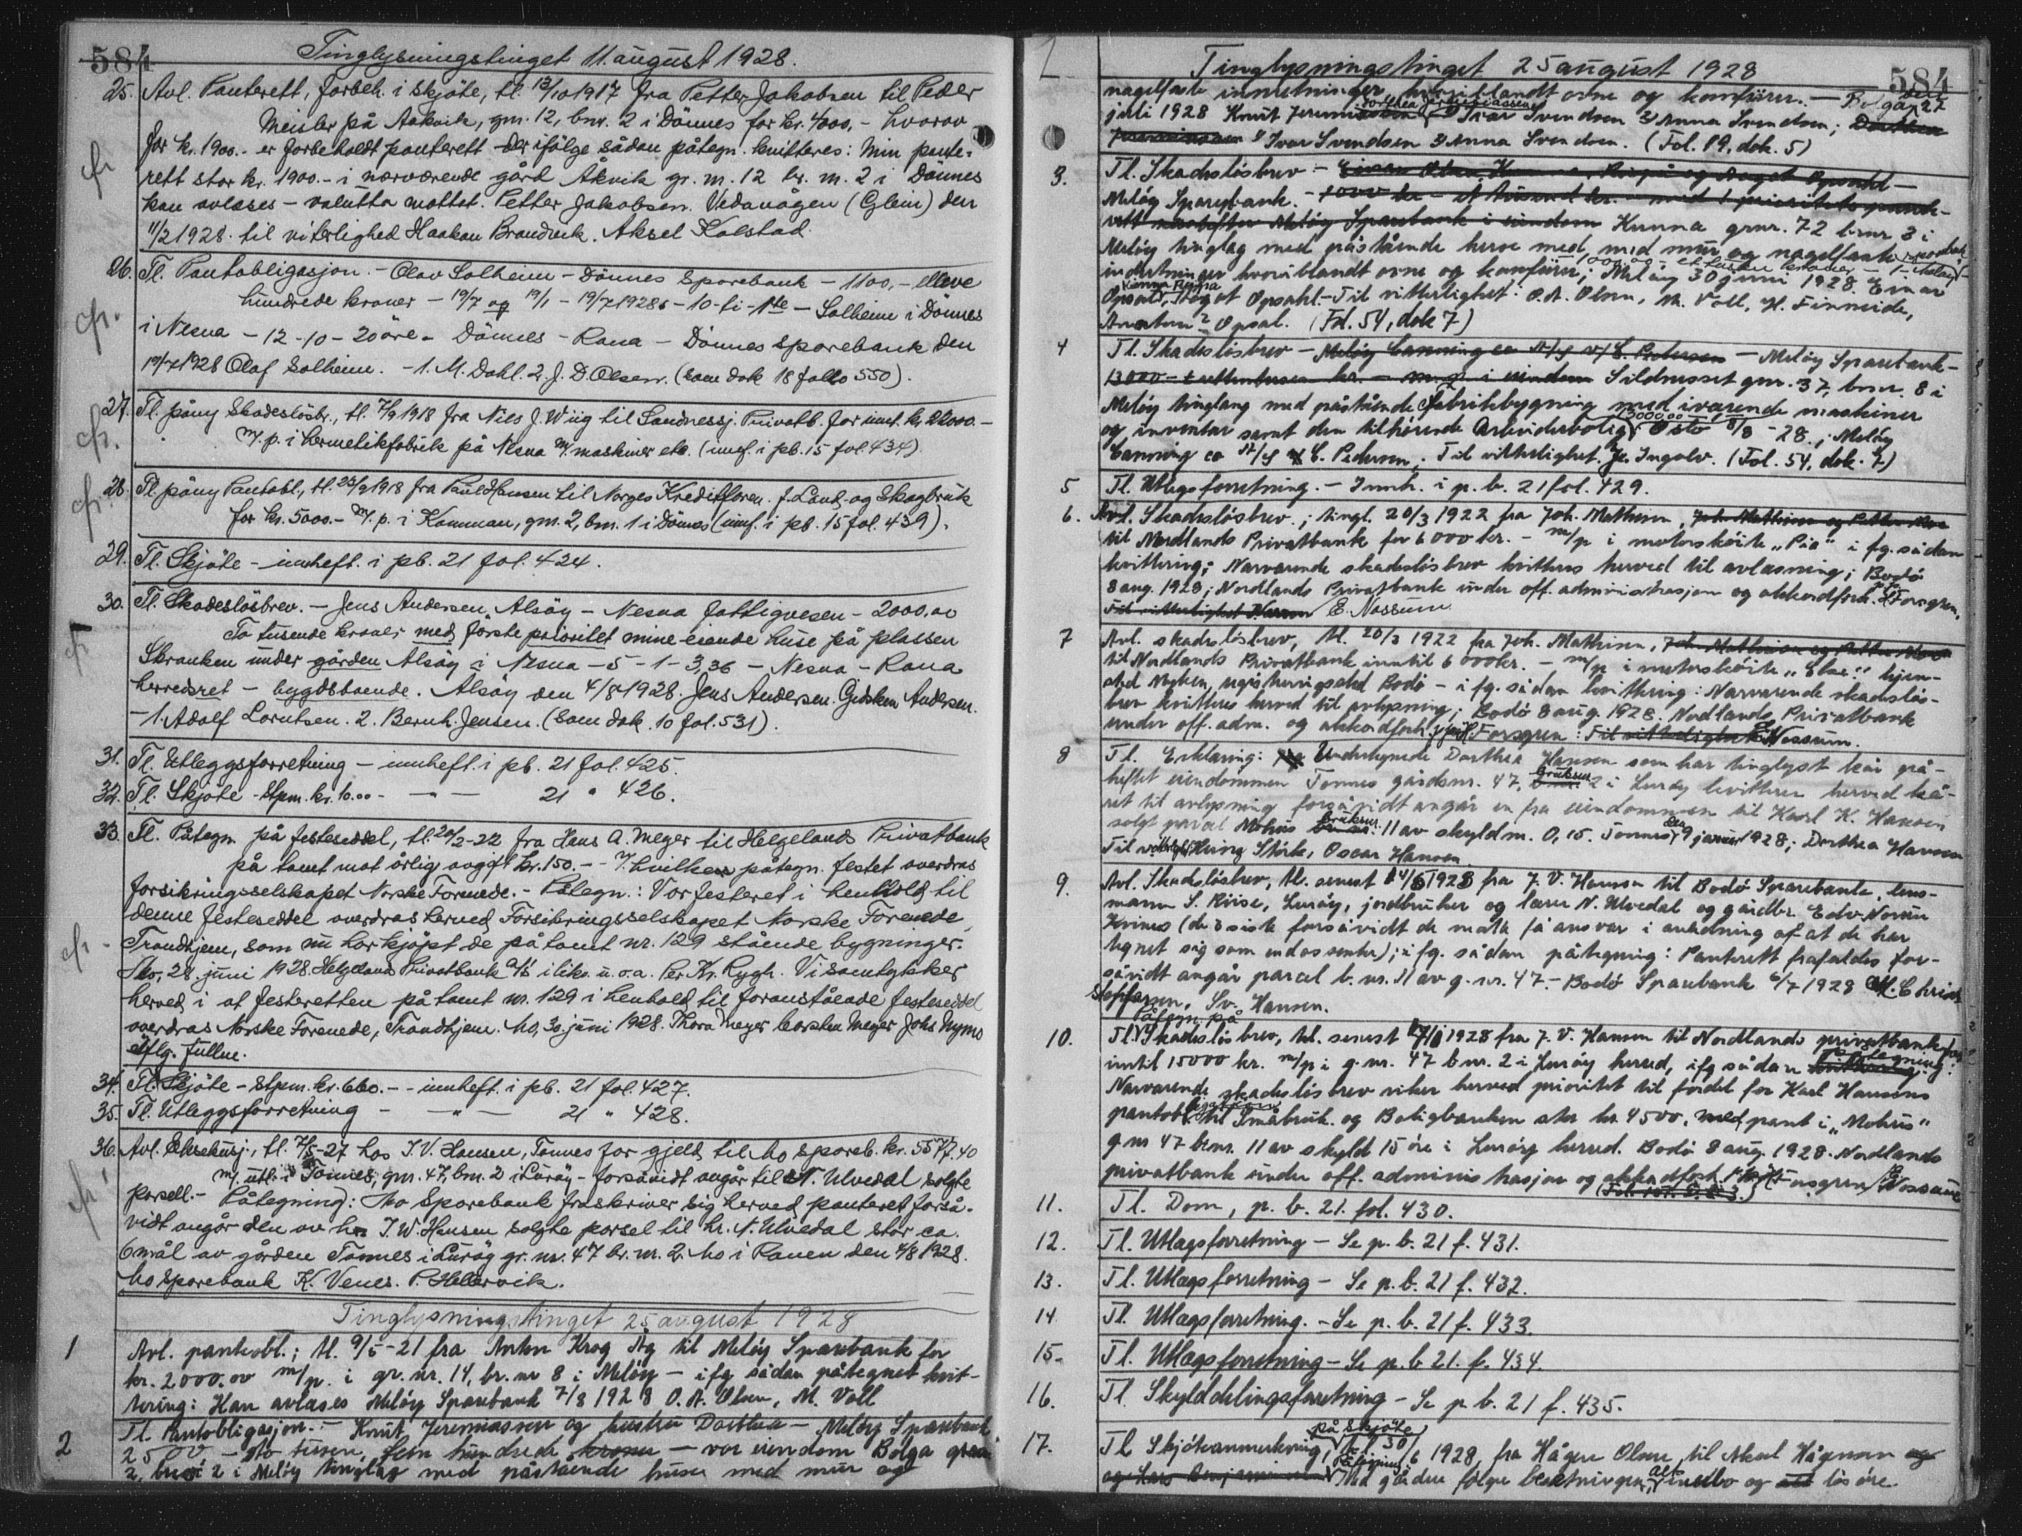 584
Tinglysningstinget 11 august 1928.
25. Avl. Panterett, forbeh. i skjöte, tl. 13/10 1917 fra Petter Jakobsen til Peder
Meisler på Aakvik, gnr. 12, bnr. 2 i Dönnes for kr. 4000,- hvorav
for kr. 1900.- er forbeholdt panterett ifölge sådan påtegn. kvitteres: Min pante-
rett stor kr. 1900.- i nærværende gård Åkvik gr. nr. 12 br. nr. 2 i Dönnes
kan avlæses - valutta mottat. Petter Jakobsen. Vedavågen (Glein) den
11/2 1928. til viterlighed Haakon Brandvik. Aksel Kolstad
26. Tl. Pantobligasjon. - Olav Solheim - Dönnes Sparebank - 1100,- elleve
hundrede kroner - 19/7 og 19/1 - 19/7 1928 - 10-ti - 1ste - Solheim i Dönnes
i Nesna - 12-10-20 öre - Dönnes - Rana - Dönnes sparebank den
19/7 1928 Olaf Solheim. - 1. M. Dahl. 2. J. D. Olsen. (Som dok 18 folio 550).
27. Tl. påny Skadeslösbr., tl. 7/9 1918 fra Nils J. Wiig til Sandnessj. Privatb. for inntil kr. 21000.-
m/p. i hermetikfabrik på Nesna m/ maskiner etc. (innf. i pb. 15 fol. 434)
28. Tl. påny Pantobl., tl. 25/9 1918 fra Paul Hansen til Norges Kreditforen. f. Land- og Skogbruk
for kr. 5000.- m/p. i Komman, gnr. 2, bnr. 1 i Dönnes (innf. i pb. 15 fol. 439).
29. Tl. Skjöte - innheft. i pb. 21 fol. 424.
30. Tl. Skadeslösbrev. - Jens Andersen, Alsöy - Nesna fattigvesen - 2000.00
To tusende kroner med förste prioritet mine eiende huse på plassen
Skranken under gården Alsöy i Nesna - 5 - 1 - 3,36 - Nesna - Rana
herredsret - bygdsboende. Alsöy den 4/8 1928. Jens Andersen. Gjörken Andersen.
- 1. Adolf Lorntsen. 2. Bernh. Jensen. (Som dok. 10 fol. 531).
31. Tl. Utleggsforretning - innheft. i pb. 21 fol. 425.
32. Tl. Skjöte - Stpm. kr. 10.00 - - " - 21 " 426.
33. Tl. Påtegn. på festeseddel, tl. 20/2-22 fra Hans A. Meyer til Helgelands Privatbank
på tomt mot årlig avgift kr. 150.- - v/ hvilken påtegn. festet overdras
forsikringsselskapet Norske Forenede. - Påtegn.: Vor festeret i henhold til
denne festeseddel overdras herved Forsikringsselskapet Norske Forenede,
Trondhjem, som nu har kjöpt de på tomt nr. 129 stående bygninger.
Mo, 28. juni 1928. Helgelands Privatbank A/S i likv. u. o. a. Per Kr. Rygh. Vi samtykker
herved i at festeretten på tomt nr. 129 i henhold til foranstående festeseddel
overdras Norske Forenede, Trondhjem. Mo, 30. juni 1928. Thora Meyer Carsten Meyer Johs Nymo
efflg. fullm.
34. Tl. Skjöte - Stpm. kr. 660.- - innheft. i pb. 21 fol. 427.
35. Tl. Utleggsforretning - - " - 21 " 428.
36. Avl. Eksekusj., tl. 7/5-27 hos I. V. Hansen, Tonnes for gjeld til Mo Spareb. kr. 5577.40
m/ utl. i Tonnes, gnr. 47, bnr. 2 i Luröy - forsåvidt angår til N. Ulvedal solgte
parsell. - Påtegning: Mo Sparebank fraskriver sig herved panteret forså-
vidt angår den av hr. I. W. Hansen solgte parsel til hr. N. Ulvedal stor ca.
6 mål av gården Tonnes i Luröy gr. nr. 47 br. nr. 2. Mo i Ranen den 4/8 1928.
Mo Sparebank K. Venes. P. Hellervik.
Tinglysningstinget 25 august 1928
1 Avl. pantobl.; tl. 9/5-21 fra Anton Krog Ag til Melöy Sparebank for
kr. 2000,00 m/p. i gr. nr. 14, br. nr 8 i Melöy - ifg sådan påtegnet kvit-
tering: Kan avlæses Melöy Sparebank 7/8 1928 O. A. Olsen, M. Voll
2 Tl. Pantobligasjon. - Knut Jeremiassen og hustru Dorthea - Melöy Sparebank
2500 - to tusen, fem hundrede kroner - vor eiendom Bolga grnr
2, brnr 2 i Melöy tinglag med påstående huse med mur og
584
Tinglysningstinget 25 august 1928
nagelfaste innretninger hvoriblandt ovne og komfurer. - Bolga, den 22
juli 1928 Knut Jeremiassen Dorthea Jeremiassen 1) Ivar Svendsen 2) Anna Svendsen; Dorthea
Jeremiassen 1) Ivar Svendsen 2) Anna Svendsen. (Fol. 19, dok. 5)
3. Tl. Skadeslösbrev - Opsahl -
Melöy Sparebank. - 1000 kr - et tusend kr. - med 1 prioritets pant-
rett Melöy Sparebank i eiendom Kunna gnr. 72 bnr 3 i
Melöy tinglag med påstående huse med, med mur og nagelfaste
indretninger hvoriblandt ovne og komfurer; Melöy 30 juni 1928 Einar
Opsahl, Aagot Opsahl - Til vitterlighet: O. A. Olsen, M. Voll, H. Finneide,
Opsal. (Fol. 54, dok 7)
4 Tl. Skadeslösbrev - Melöy Canning co A/S v/ C. Pedersen - Melöy Sparebank -
13000 - trettentusen kr. - m. p. i eiendom Sildneset gnr. 37, bnr. 8 i
Melöy tinglag med påstående Fabrikbygning med iværende maskiner
og inventar samt den tilhörende Arbeiderbolig 13000,00 Oslo 8/8 - 28.; Melöy
Canning co A/S C. Pedersen. Til vitterlighet Ingolv. (Fol. 54, dok. 7)
5 Tl. Utlegsforretning. - Innh. i p. b. 21 fol. 429.
6. Avl. Skadeslösbrev.; tingl. 20/3 1922 fra Joh. Mathisen,
til Nordlands Privatbank for 6000 kr. - m/p i motorsköite "Pia" i fg. sådan
kvittering: Nærværende skadeslösbrev kvitteres herved til avlæsning; Bodö
8 aug. 1928; Nordlands Privatbank under off. administrasjon og akkordforh. Forsgren,
Til vitterlighet E. Nossum
7 Avl. skadeslösbrev, tl. 20/3 1922 fra Joh. Mathisen,
til Nordlands Privatbank inntil 6000 kr. - m/p i motorsköite "Else" hjem-
sted Myken, registreringssted Bodö - i fg. sådan kvittering: Nærværende skadeslös-
brev kvitteres herved til avlysning; Bodö 8 aug. 1928. Nordlands Privatbank
under off. adm. og akkordforh. Forsgren: Til vitterlighet E. Nossum.
8 Tl. Erklæring: Undertegnede Dorthea Hansen som har tinglyst kår på-
heftet eiendommen Tonnes gårdsnr. 47, bruksnr 2 i Luröy kvitterer herved kå-
ret til avlysning forsåvidt angår en fra eiendommen til Karl K. Hansen
solgt parcel Mohus bruksnr. 11 av skyldm. 0,15. Tonnes den 9 januar 1928; Dorthea Hansen
Til vitterlighet Störk, Oscar Hansen.
9. Avl. Skadeslösbrev, tl. senest 14/6 1928 fra J. V. Hansen til Bodö Sparebank. lens-
mann S. Kiise, Luröy, jordbruker og lærer N. Ulvedal og gårdbr. Edv. Norum
Krines (de 3 siste forsåvidt de måtte få ansvar i anledning af at de har
tegnet sig som endossenter); i fg. sådan påtegning: Panterett frafaldes for-
såvidt angår parcel b. nr. 11 av g. nr. 47. - Bodö Sparebank 6/7 1928 M. Christ-
offersen, Sv. Hansen.
10. Tl. Påtegn. på Skadeslösbrev, tl. senest 1928 fra J. V. Hansen til Nordlands privatbank for
inntil 15000 kr. m/p i g. nr. 47 b nr. 2 i Luröy herred, ifg sådan påtegning:
Nærværende skadeslösbrev viker herved prioritet til fordel for Karl Hansens
pantobl. til Småbruk og Boligbanken stor kr 4500, med pant i "Mohus"
g nr 47 b. nr. 11 av skyld 15 öre i Luröy herred. Bodö 8 aug. 1928. Nordlands
privatbank under off. administrasjon og akkordforh. Forsgren, E. Nossum
11. Tl. Dom, p. b. 21. fol. 430.
12. Tl. Utlægsforretning - Se p. b. 21 f. 431.
13. Tl. Utlægsforretning - Se p. b. 21 f. 432.
14 Tl. Utlægsforretning. - Se p. b. 21 f. 433.
15- Tl. Utlægsforretning - Se p. b 21. f. 434.
16. Tl. Skylddelingsforretning - Se p b. 21 f. 435.
17. Tl Skjöteanmerkning, på skjöte tl. 30/6 1928 fra Hågen Olsen, til Aksel Hågensen og
og Lars Benjaminsen Påtegning: Med gården fölger besetningen, alt indbo og alt lösöre